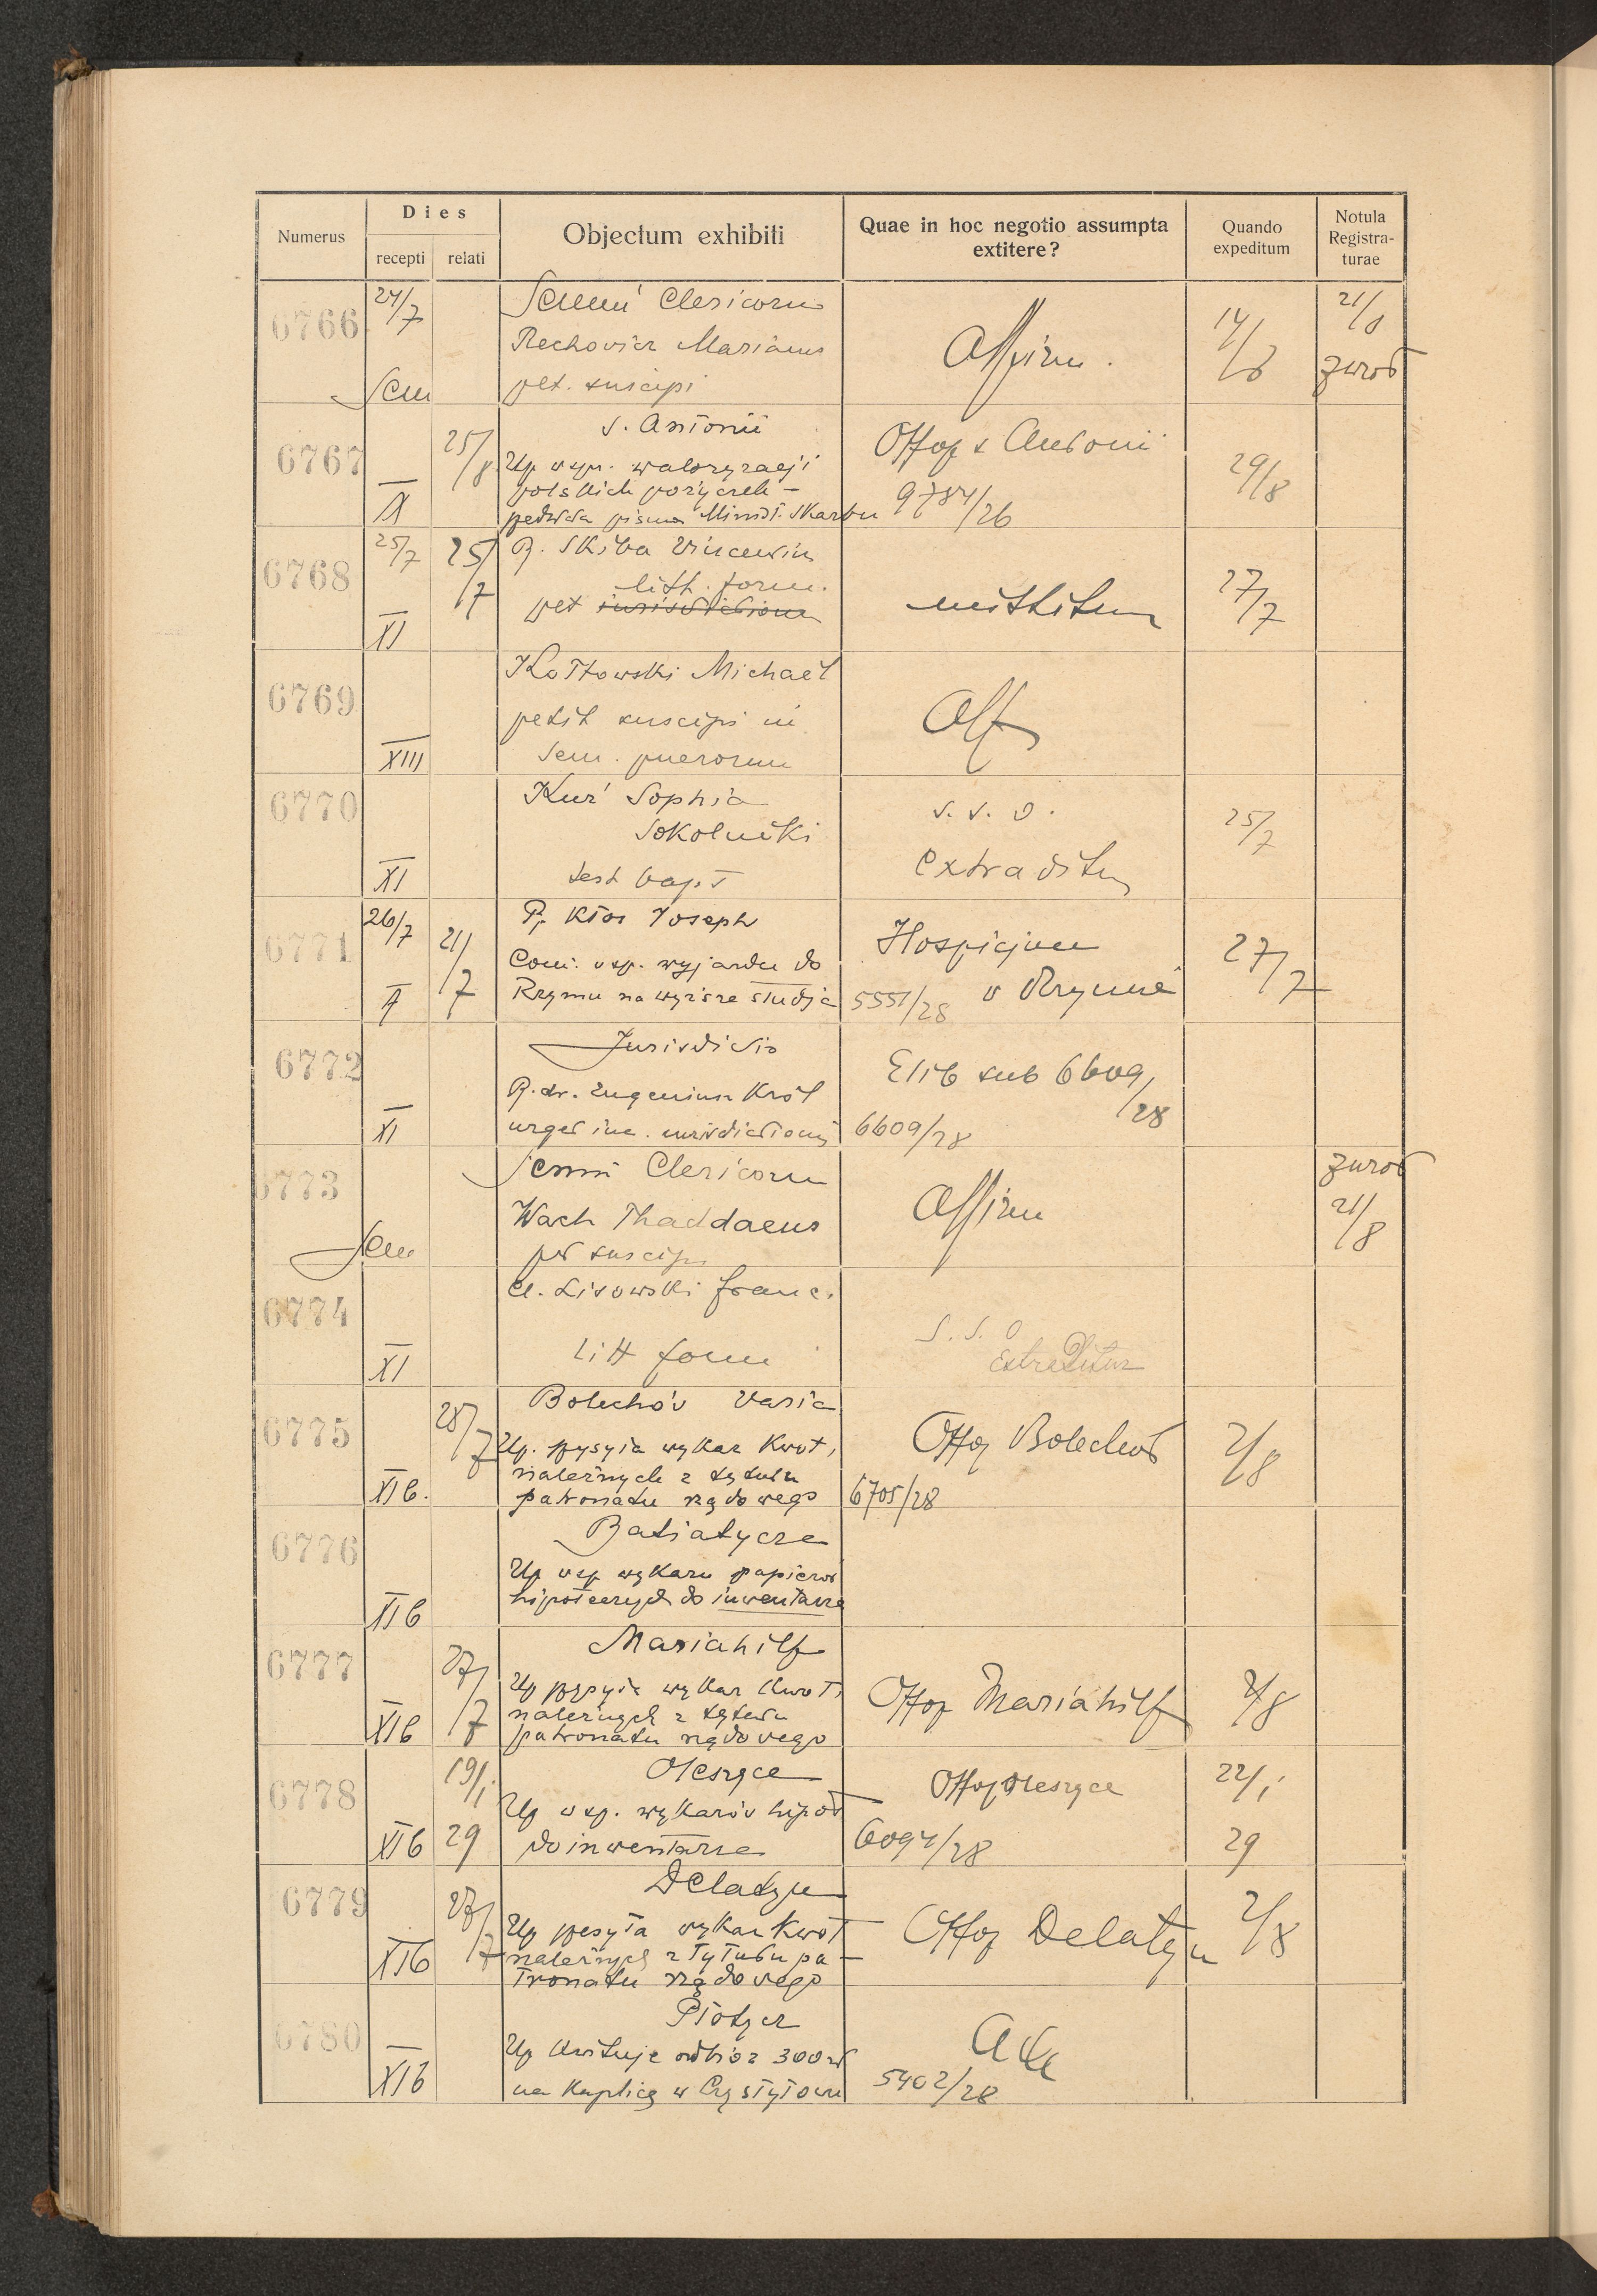 Numerus
Dies
recepti relati
Objectum exhibiti
Quae in hoc negotio assumpta
extitere?
Quando
expeditum
Notula
Registra-
turae
6766
24/7
Sem
Clericorum
Rechowicz Marianus
pet. suscipi
Affirm.
14/8
21/8
zwrot
6767
IX
25/8
S. Antonii
Up wspr. waloryzacji
polskich pożyczek -
pisma Minist. Skarbu
Offop s Antonii
9784/26
29/8
6768
25/7
XI
25/7
R. Skiba Vincentius
litt. form.
pet iurisdictionem
mittitur
27/7
6769
XIII
Kottowski Michael
petit suscipi in
Sem. puerorum
Aff
6770
XI
Kuź Sophia
Sokolniki
test bapt
S. S. O.
extraditur
25/7
6771
26/7
II
21/7
R. Kłos Joseph
Com. wsp. wyjazdu do
Rzymu na wyższe studja
Hospicjum
w Rzymie
5551/28
27/7
6772
XI
Jurisdictio
R. dr. Eugeniusz Król
urget iurisdictionis
Elib sub 6609/28
6609/28
6773
Sem
Clericorum
Wach Thaddaeus
pet suscipi
Affirm
zwrot
21/8
6774
XI
Cl. Lisowski Franc.
Litt form
S. S. O
Extraditur
6775
XIb.
28/7
Bolechów Varia
Up. przysyła wykaz kwot,
należnych z tytułu
patronatu rządowego
Offop Bolechów
6705/28
2/8
6776
XIb
Batiatycze
Up wsp wykazu papierów
hipotecznych do inwentarza
6777
XIb
27/7
Mariahilf
Up przysyła wykaz kwot,
należnych z tytułu
patronatu rządowego
Offop Mariahilf
2/8
6778
XIb
19/1
29
Oleszyce
Up wsp. wykazów hipot
do inwentarza
Offop Oleszyce
6094/28
22/1
29
6779
XIb
27/7
Delatyn
Up przesyła wykaz kwot
należnych z tytułu pa-
tronatu rządowego
Offop Delatyn
2/8
6780
XIb
Płotycz
Up kwituje odbiór 300 zł
na kaplicę w Czystyłowie
Acta
5402/28